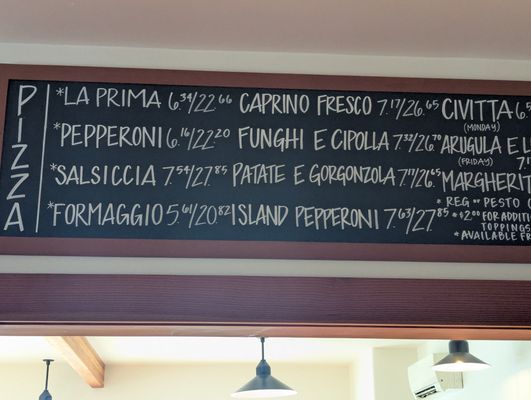 PIZZA
*LA PRIMA 6.34/22.66 CAPRINO FRESCO 7.17/26.65 CIVITTA 6.5
(MONDAY)
*PEPPERONI 6.16/22.20 FUNGHI E CIPOLLA 7.32/26.70 ARUGULA E L
(FRIDAY) 7.
*SALSICCIA 7.54/27.85 PATATE E GORGONZOLA 7.17/26.65 MARGHERIT
* REG ** PESTO
*FORMAGGIO 5.61/20.82 ISLAND PEPPERONI 7.63/27.85 *$2.00 FOR ADDITI
TOPPINGS
*AVAILABLE FR